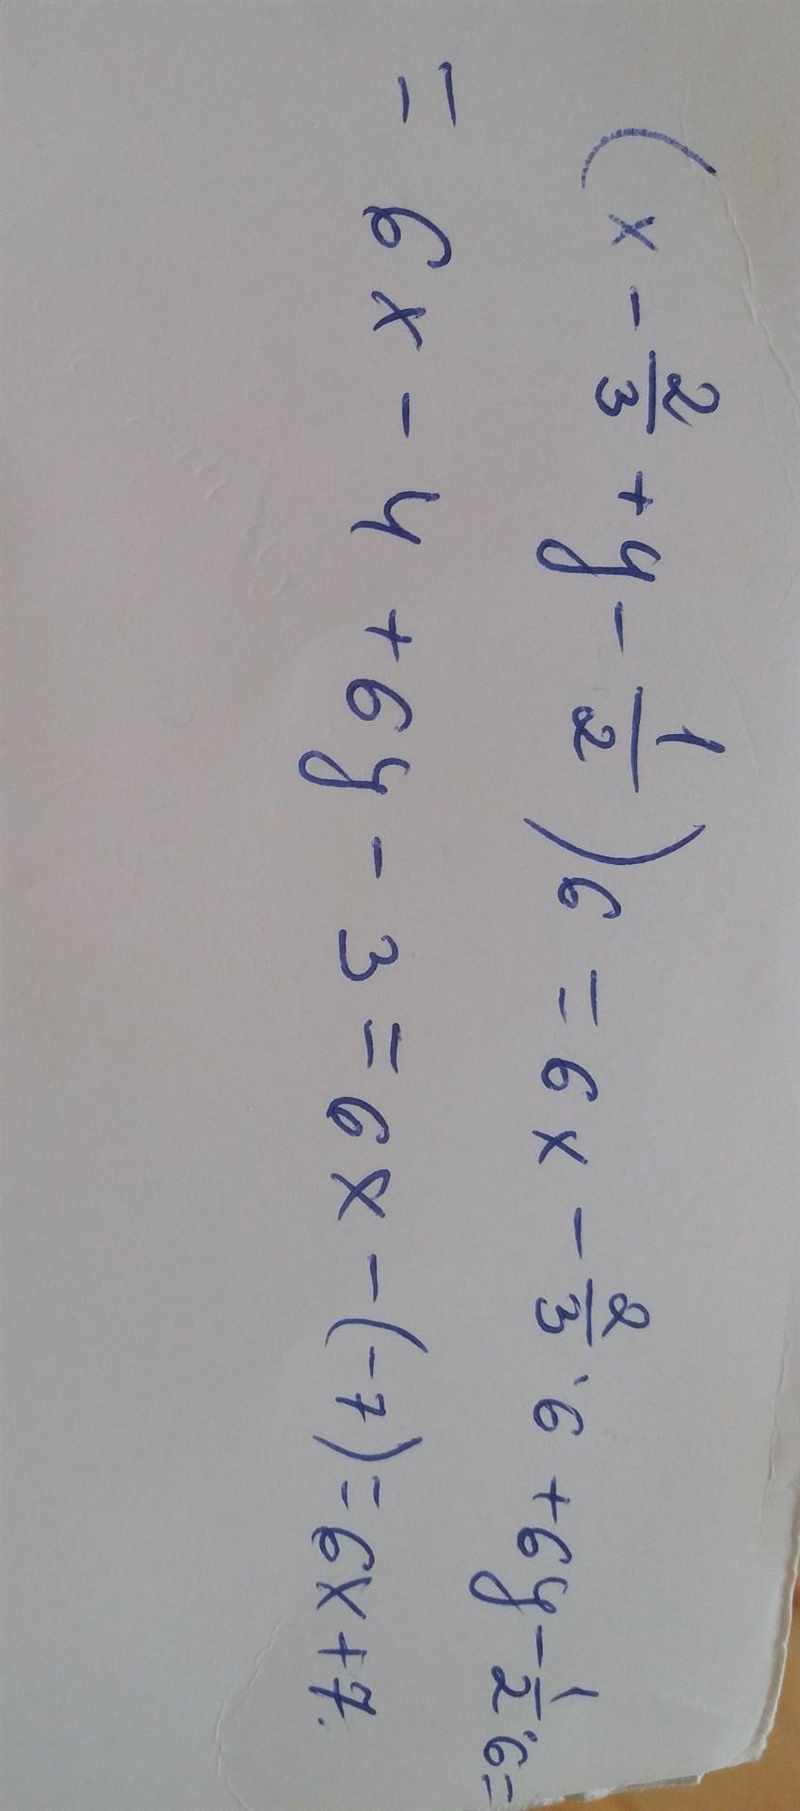 (x - 2/3 + y - 1/2)6 = 6x - 2/3·6 + 6y - 1/2·6 =
= 6x - 4 + 6y - 3 = 6x - (-7) = 6x + 7.